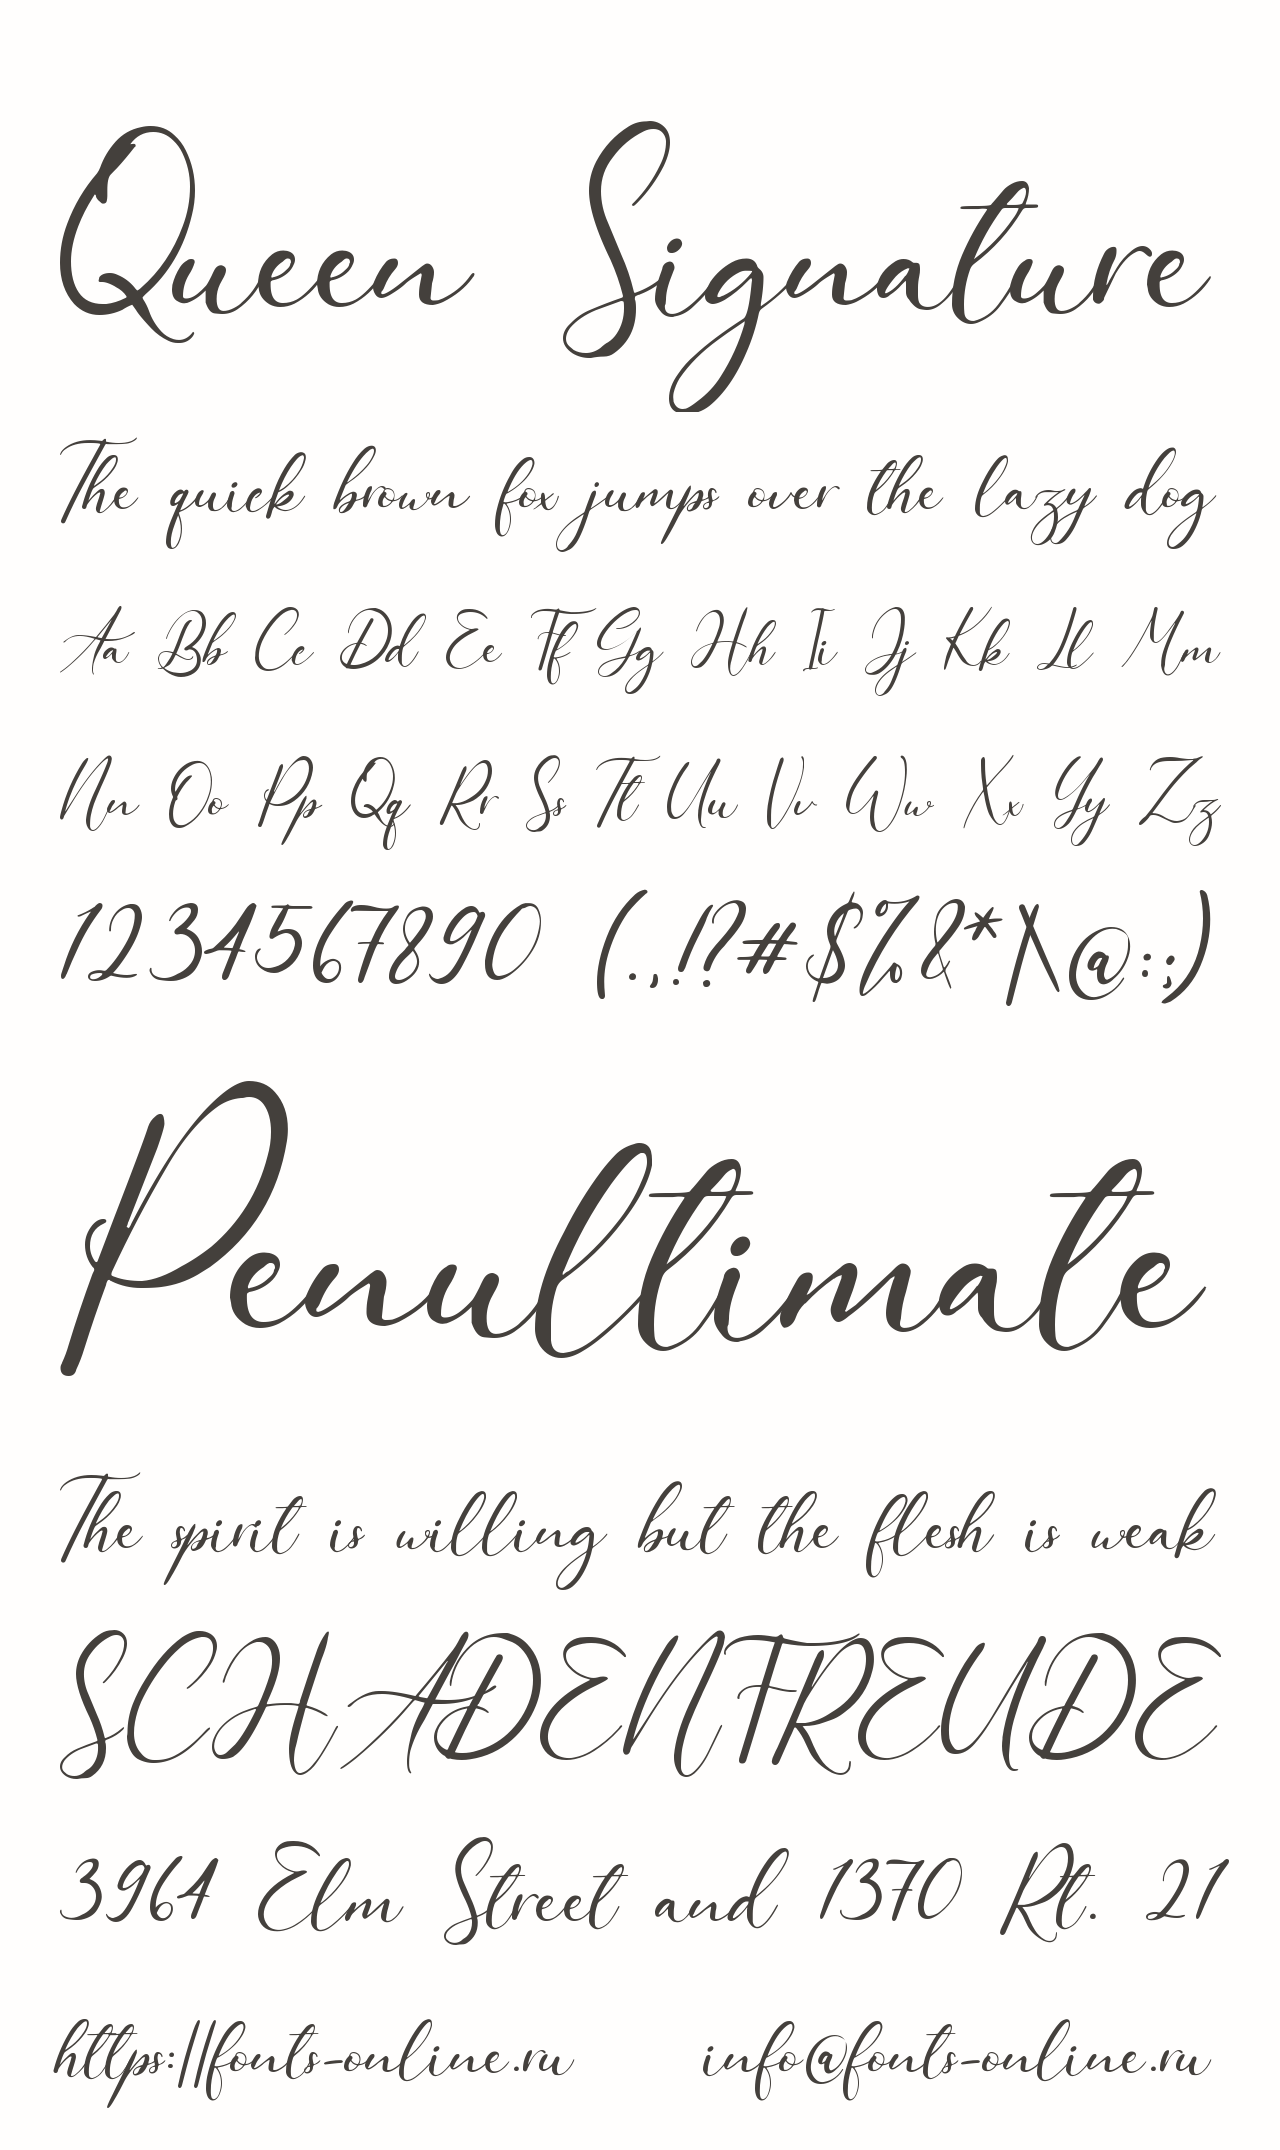 Queen Signature
The quick brown fox jumps over the lazy dog
Aa Bb Cc Dd Ee Ff Gg Hh Ii Jj Kk Ll Mm
Nn Oo Pp Qq Rr Ss Tt Uu Vv Ww Xx Yy Zz
1234567890 (.,!?#$%&*/\@:;)
Penultimate
The spirit is willing but the flesh is weak
SCHADENFREUDE
3964 Elm Street and 1370 Rt. 21
https://fonts-online.ru info@fonts-online.ru